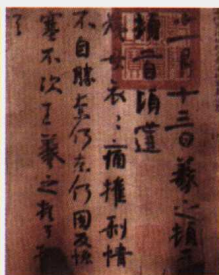 一月十三日羲之頓
頓首頃遘
姨母哀〻痛摧剝情
不自勝奈何奈何因反慘
塞不次王羲之頓首